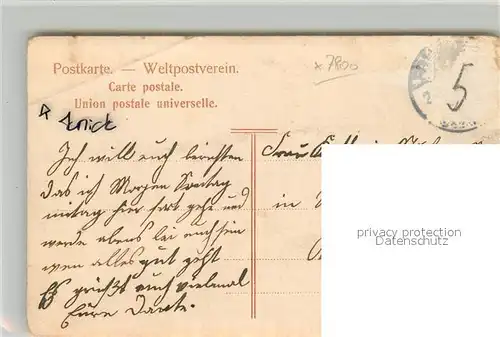 Postkarte. — Weltpostverein.
Carte postale.
Union postale universelle.
x 7800
5
Knick
Ich will euch berichten
das ich Morgen Sontag
mitag hier fort gehe und
werde abens bei euch sein
wen alles gut geht
Es grüßt euch vielmal
Eure Dante.
Frau
in
privacy protection
Datenschutz